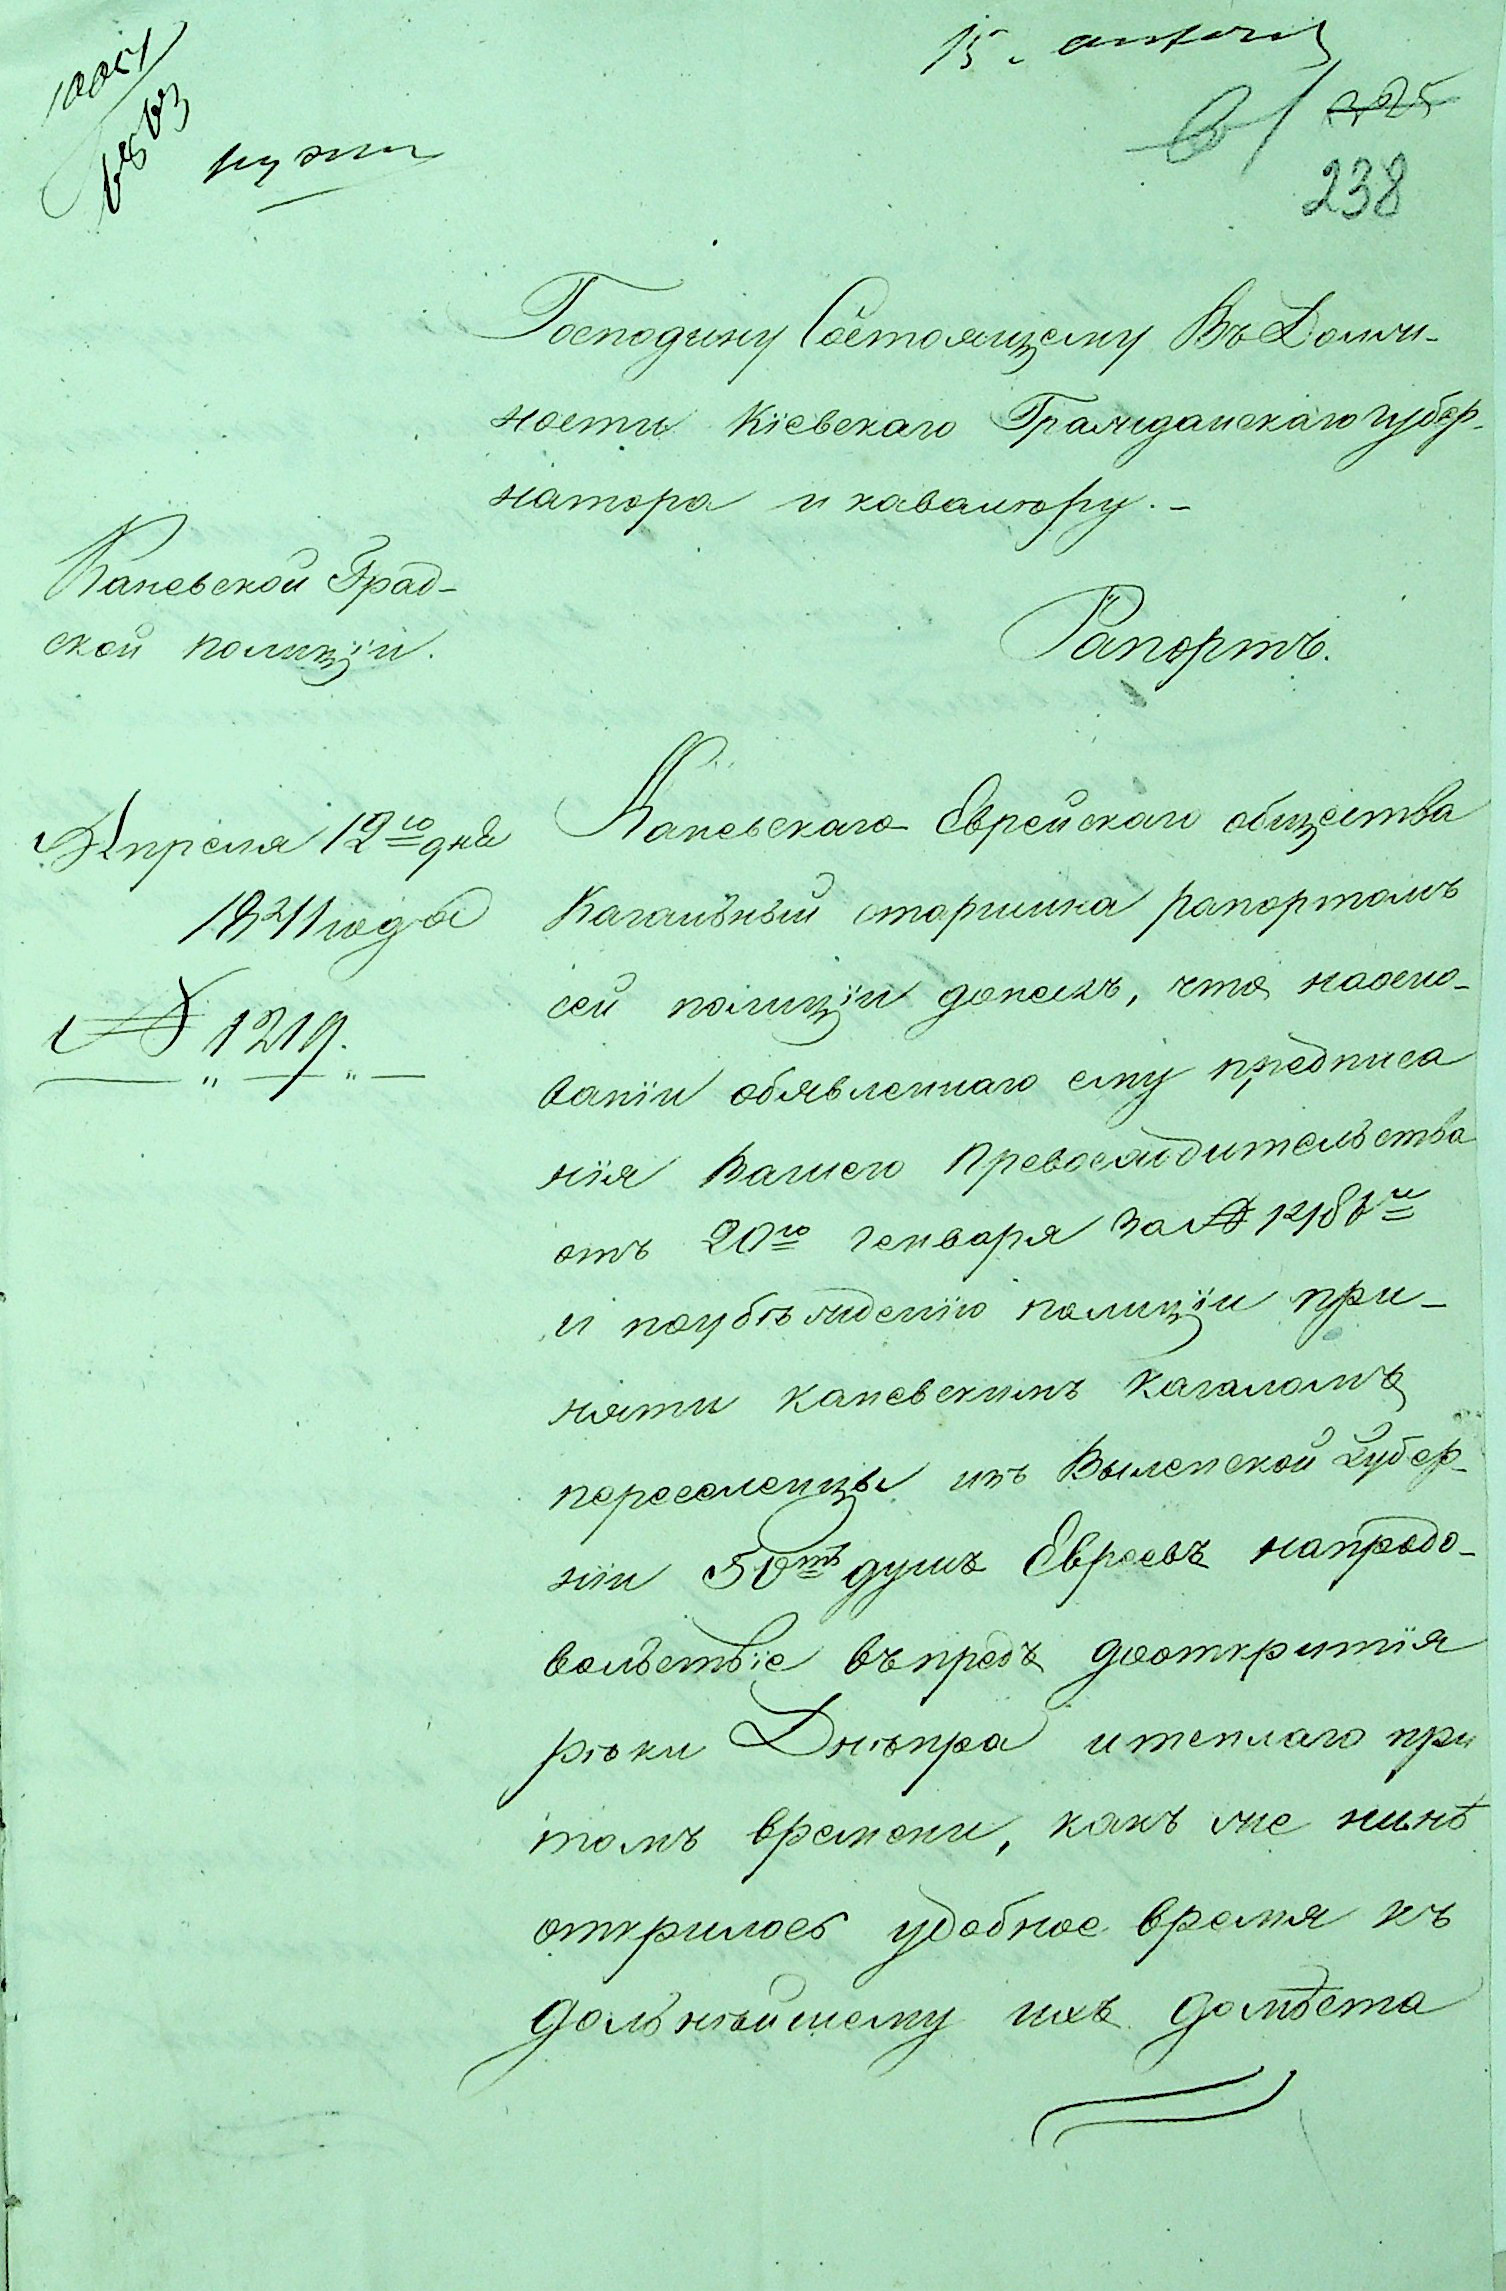 15. апреля
238
Господину Состоящему Въ Долж-
ности Кіевскаго Гражданскаго губер-
натора и кавалюру. -
Каневской Град-
ской полиціи.
Рапортъ.
Апреля 12го дня
1841 года
№ 1219.
Каневскаго Еврейскаго общества
Кагальный старшина рапортомъ
сей полиціи донелъ, что наосно-
ваніи обявленнаго ему предписа
нія Вашего Превосходительства
отъ 20го Генваря За №
и поубѣжденію полиціи при-
няти каневскимъ кагаломъ
переселенцы изъ Виленской губер-
ніи 50ть душъ Евреевъ напродо-
вольствіе въпредъ дооткритія
рѣки Днѣпра итеплаго при
томъ времени, какъ же нинѣ
открилось удобное время къ
дольнѣйшему ихъ домѣста